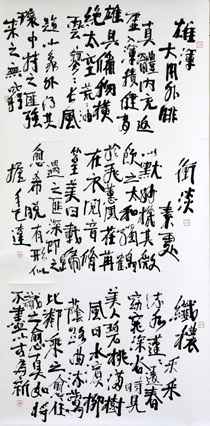 雄渾
大用外腓
真體内充返
虚入渾積健為
雄具備萬物橫
絶太空荒荒油
雲寥寥長風
超以象外得其
環中持之匪强
来之無窮
衝淡
素處
以默妙機其微
飲之太和獨鶴
與飛猶之惠風荏苒
在衣閲音修
篁美曰載歸
遇之匪深即之
愈希脱有形似
握手已違
纖穠
采采
流水蓬蓬遠春
窈窕深谷時見
美人碧桃滿樹
風日水濱柳
陰路曲流鶯
比鄰乘之愈往
識之愈真如將
不盡與古為新